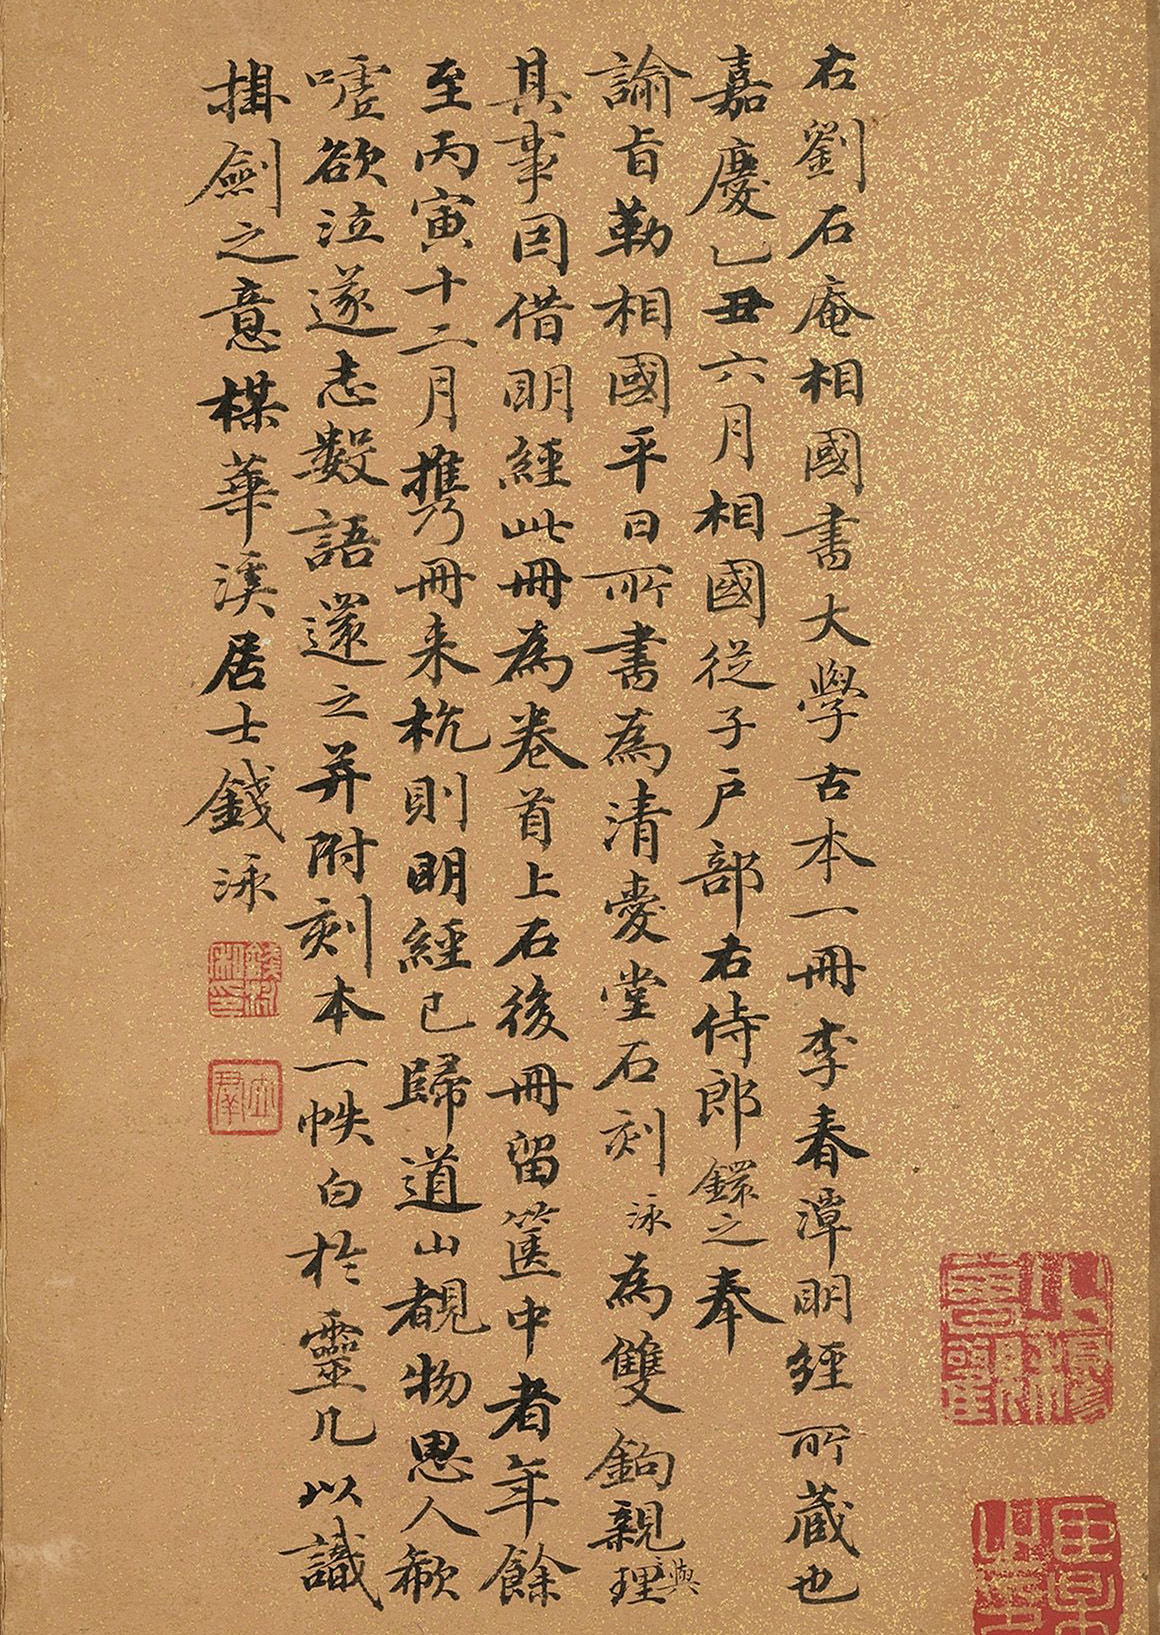 右劉石庵相國書大學古本一冊李春潭明經所蔵也
嘉慶乙丑六月相國從子戶部右侍郎鐶之奉
諭旨勒相國平日所書為清愛堂石刻泳為雙鉤親與理
其事因借明經此冊為卷首上石後冊留篋中者年餘
至丙寅十二月攜冊来杭則明經已歸道山覩物思人欷
嘘欲泣遂志數語還之并附刻本一帙白於靈几以識
掛劍之意楳華溪居士錢泳